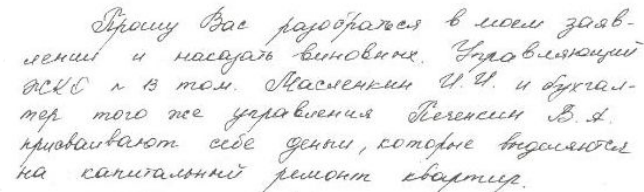 Прошу Вас разобраться в моем заяв-
лении и наказать виновных. Управляющий
ЖКС № 13 тов. Масленкин И.И. и бухгал-
тер того же управления Печенкин В.А.
присваивают себе деньги, которые выделяются
на капитальный ремонт квартир.